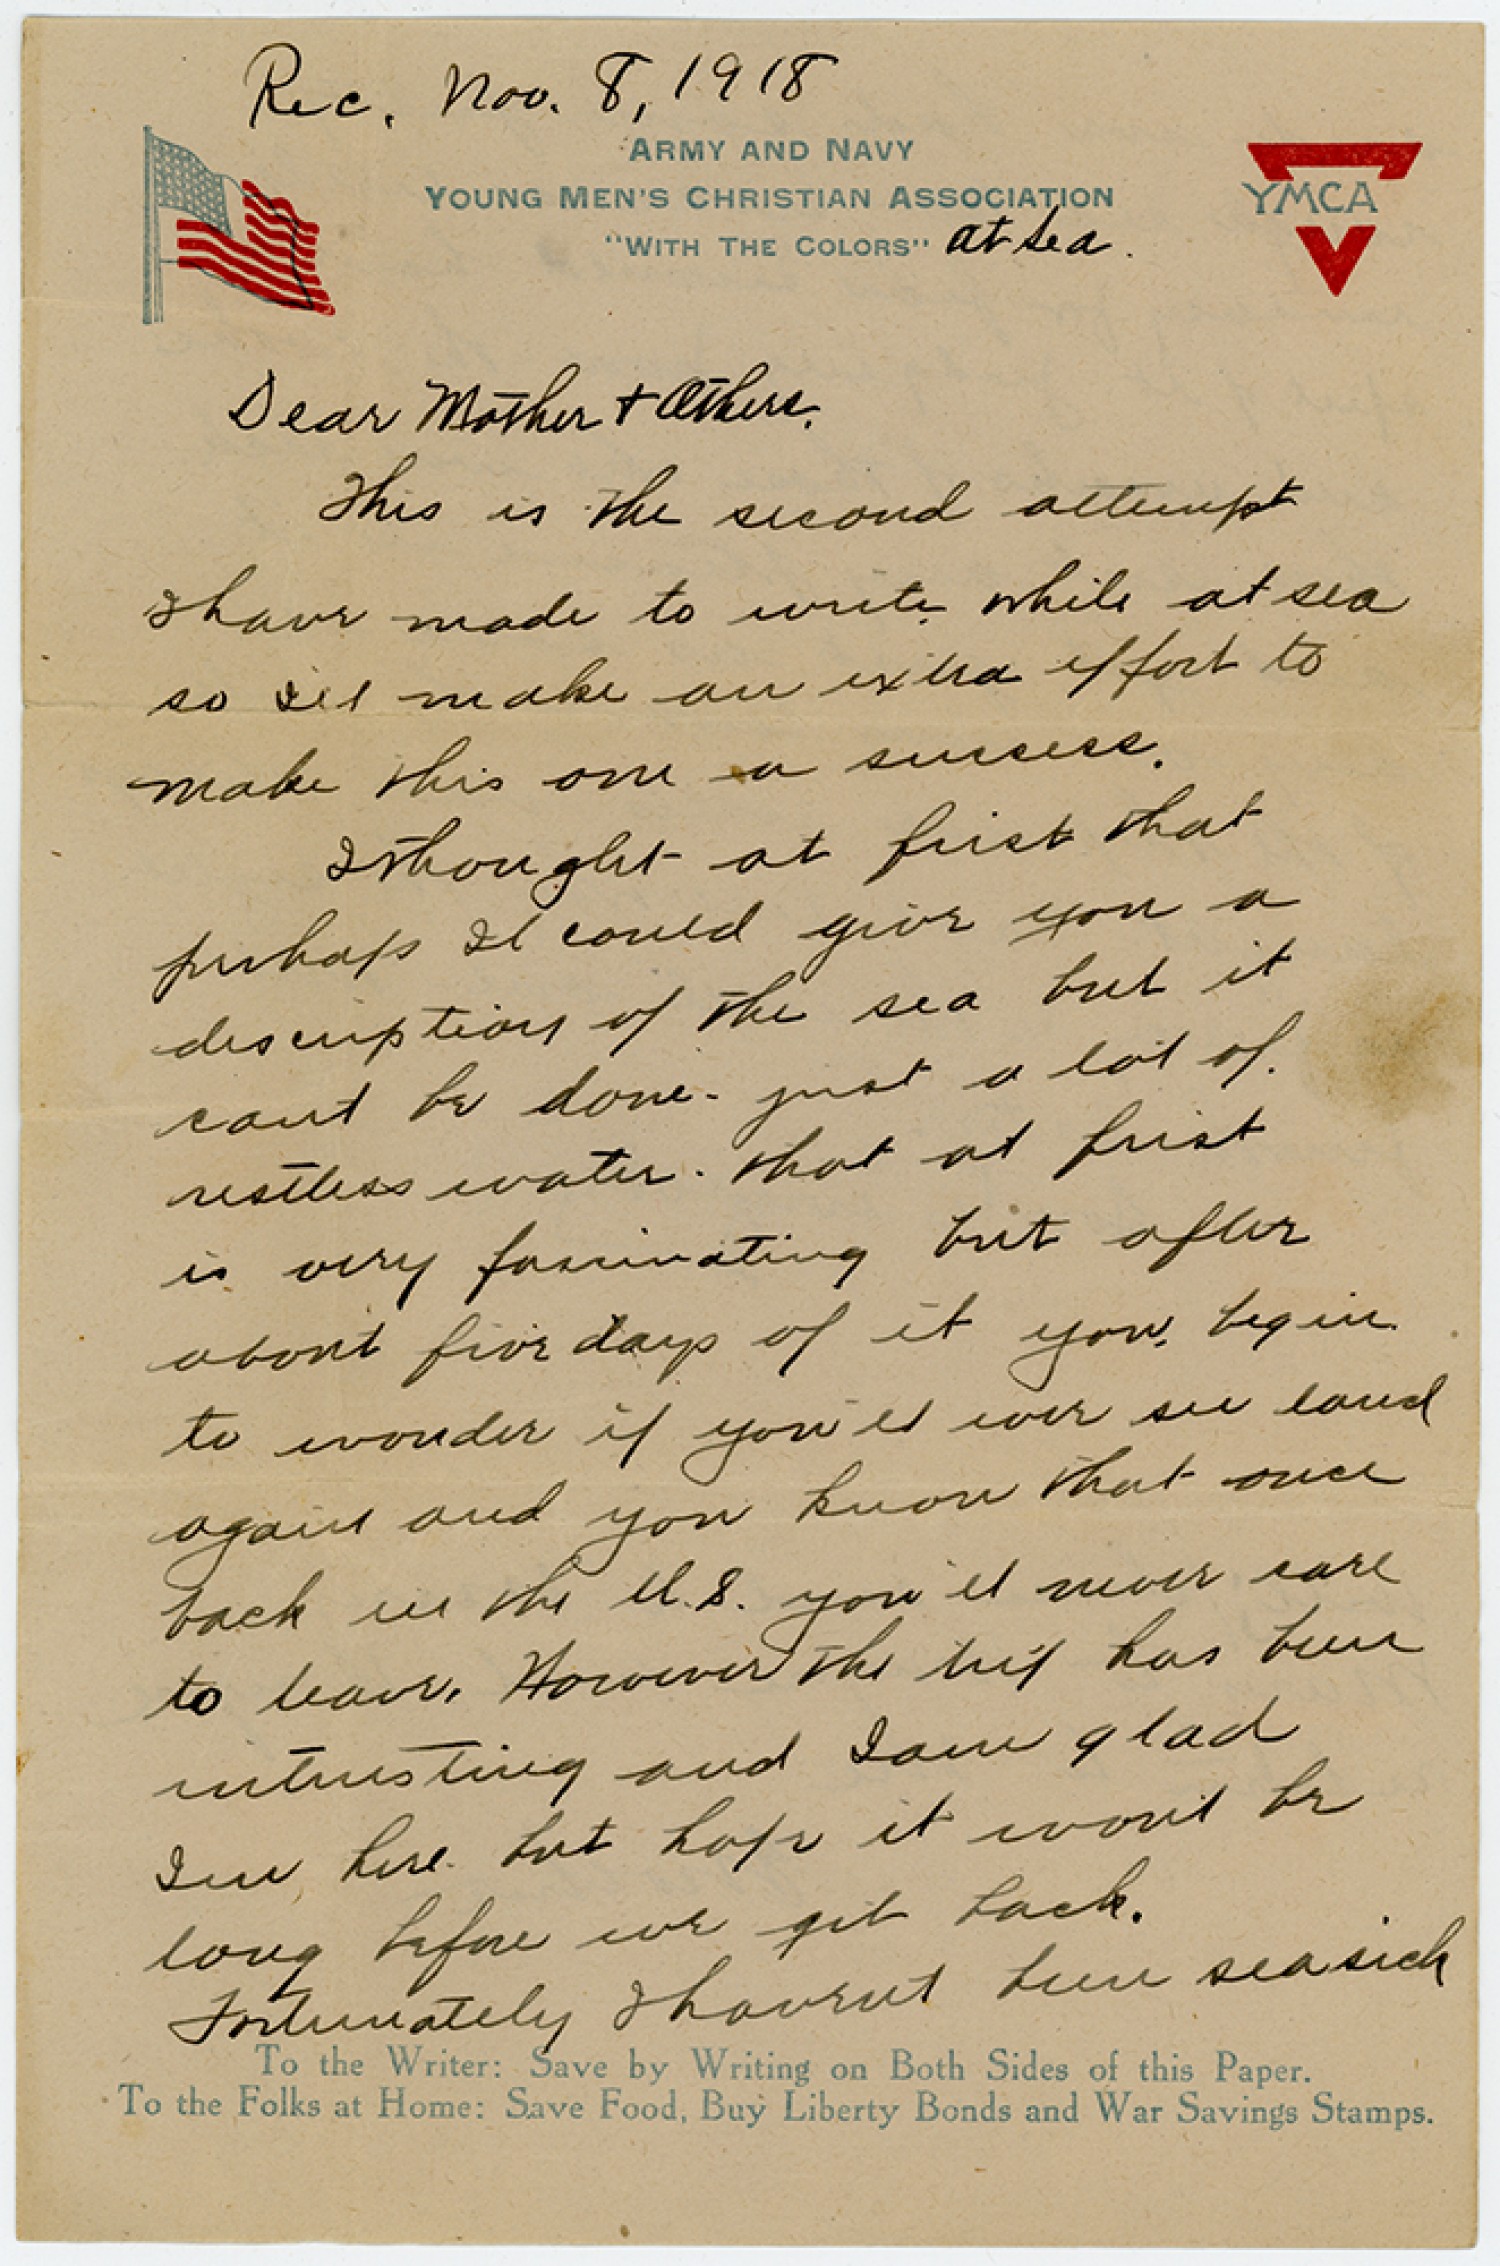 Rec. Nov. 8, 1918
ARMY AND NAVY
YOUNG MEN'S CHRISTIAN ASSOCIATION
"WITH THE COLORS" at sea.
YMCA
Dear Mother & Others.
This is the second attempt
I have made to write while at sea
so I'll make an extra effort to
make this one a success.
I thought at first that
perhaps I'd could give you a
description of the sea but it
cant be done - just a lot of
restless water. that at first
is very fascinating but after
about five days of it you begin
to wonder if you'll ever see land
again and you know that once
back in the U.S. you'll never care
to leave. However the trip has been
interesting and I am glad
I'm here but hope it won't be
long before we get back.
Fortunately I havent been seasick
To the Writer: Save by Writing on Both Sides of this Paper.
To the Folks at Home: Save Food, Buy Liberty Bonds and War Savings Stamps.